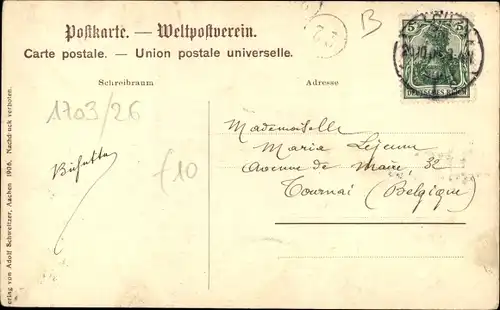 Postkarte. — Weltpostverein.
Carte postale. — Union postale universelle.
Schreibraum
Adresse
B
5 5
DEUTSCHES REICH
1703/26
£10
Mademoiselle
Maria Lejeune
Avenue de Maire, 32
Tournai (Belgique)
erlag von Adolf Schweitzer, Aachen 1906. Nachdruck verboten.